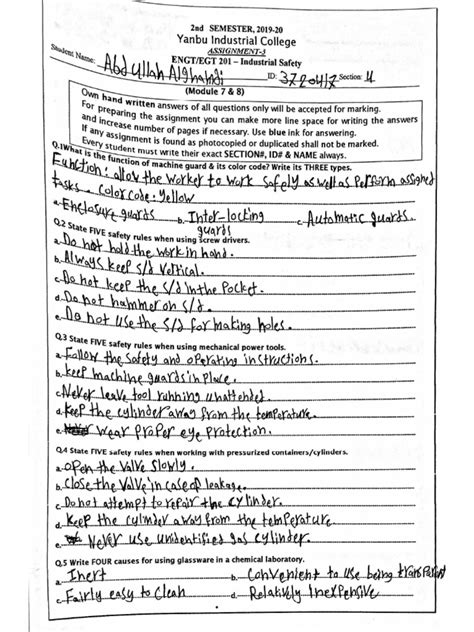 2nd SEMESTER, 2019-20
Yanbu Industrial College
ASSIGNMENT-3
ENGT/EGT 201 – Industrial Safety
Student Name: Abdullah Alghamdi ID: 3720417 Section: 4
(Module 7 & 8)
Own hand written answers of all questions only will be accepted for marking.
For preparing the assignment you can make more line space for writing the answers
and increase number of pages if necessary. Use blue ink for answering.
If any assignment is found as photocopied or duplicated shall not be marked.
Every student must write their exact SECTION#, ID# & NAME always.
Q.1What is the function of machine guard & its color code? Write its THREE types.
Function: allow the worker to work safely as well as perform assigned
tasks - Color code: Yellow
a. Enclosure guards b. Inter-locking guards c. Automatic guards.
Q.2 State FIVE safety rules when using screw drivers.
a. Do not hold the work in hand.
b. Always keep s/d vertical.
c. Do not keep the s/d in the Pocket.
d. Do not hammer on s/d.
e. Do not use the s/d for making holes.
Q.3 State FIVE safety rules when using mechanical power tools.
a. Follow the safety and operating instructions.
b. keep machine guards in place.
c. Never leave tool running unattended.
d. keep the cylinder away from the temperature.
e. wear proper eye protection.
Q.4 State FIVE safety rules when working with pressurized containers/cylinders.
a. open the valve slowly.
b. Close the valve in case of leakage.
c. Do not attempt to repair the cylinder.
d. keep the cylinder away from the temperature.
e. Never use unidentified gas cylinder.
Q.5 Write FOUR causes for using glassware in a chemical laboratory.
a. Inert b. Convenient to use being transparent
c. Fairly easy to clean d. Relatively Inexpensive